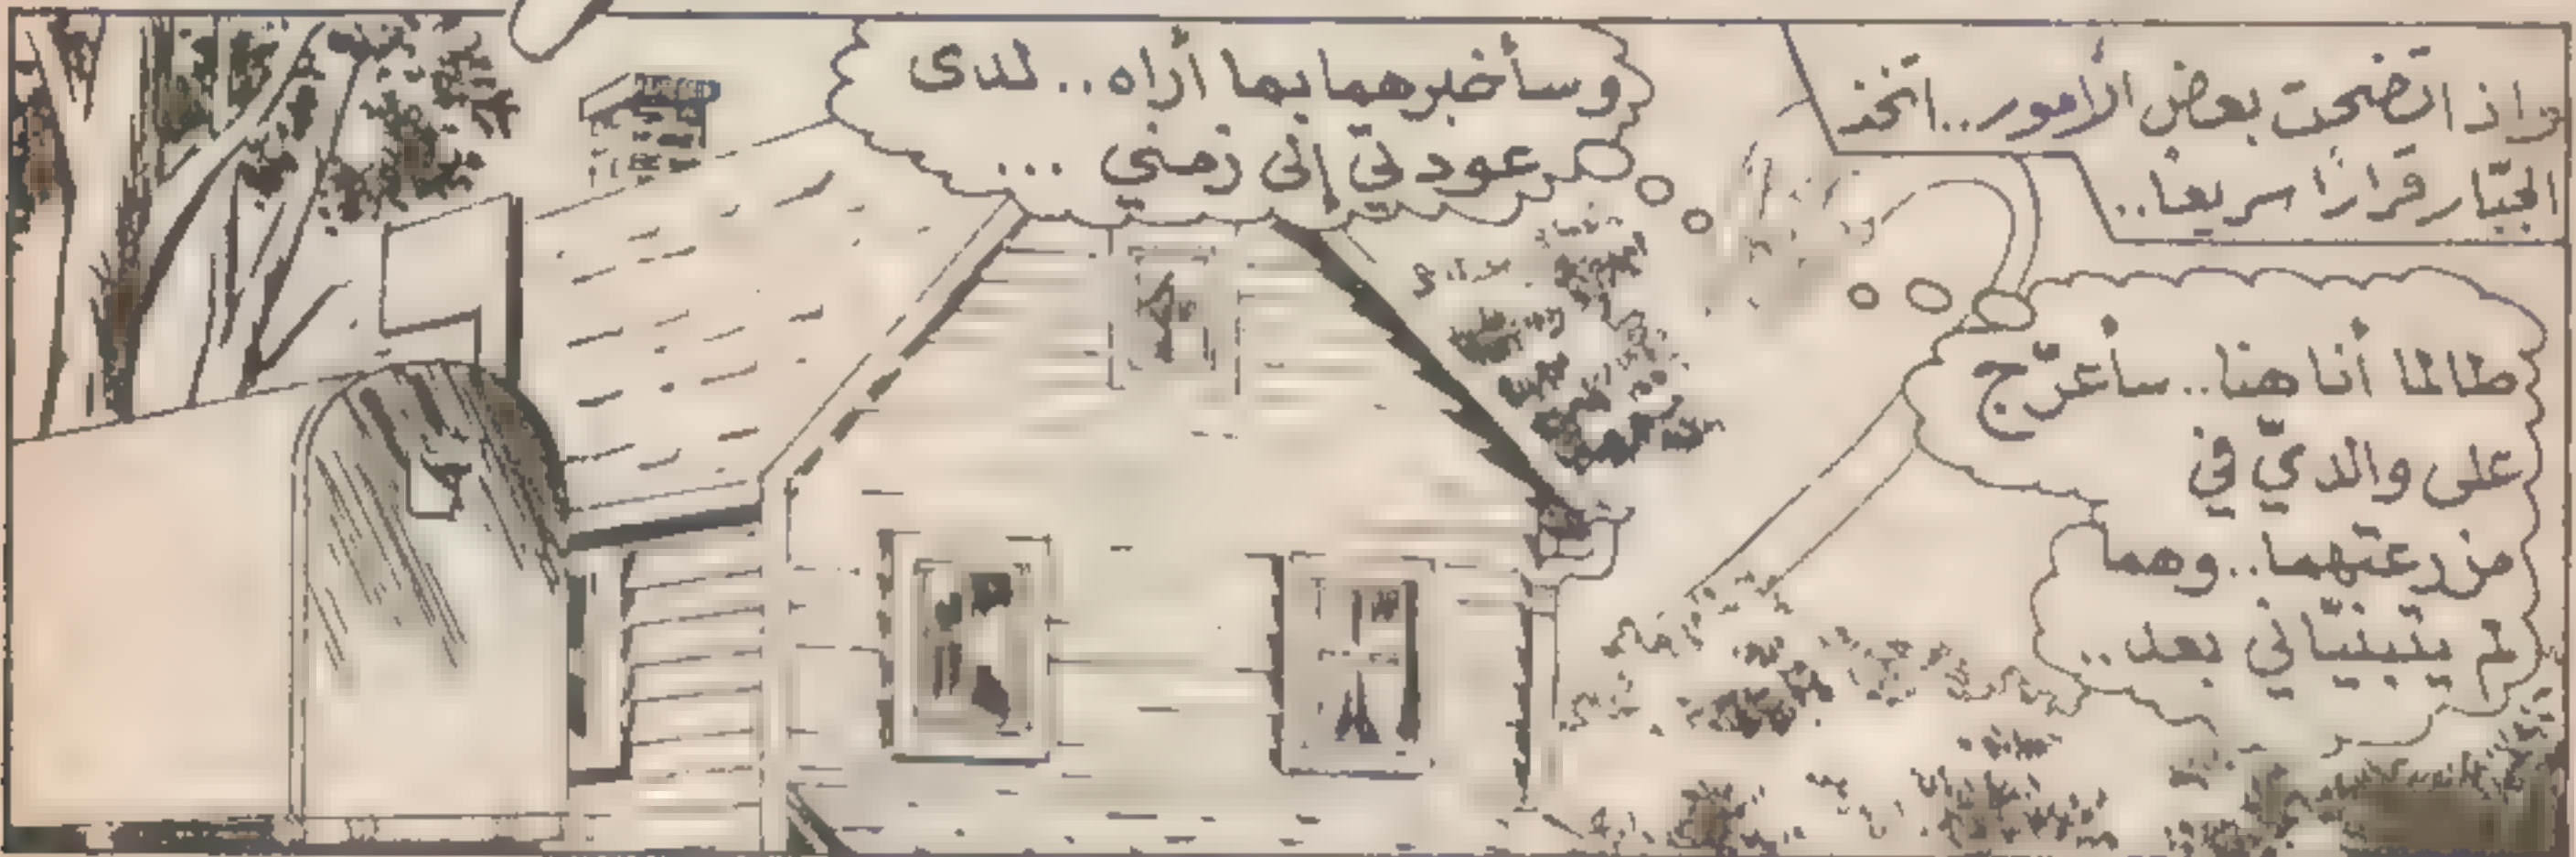 واذ اتضحت بعض الأمور.. اتخذ
الجبّار قرارًا سريعًا..
طالما أنا هنا.. سأعرّج
على والديّ في
مزرعتهما.. وهما
لم يتبنيّاني بعد..
وسأخبرهما بما أراه.. لدى
عودتي إلى زمني ...